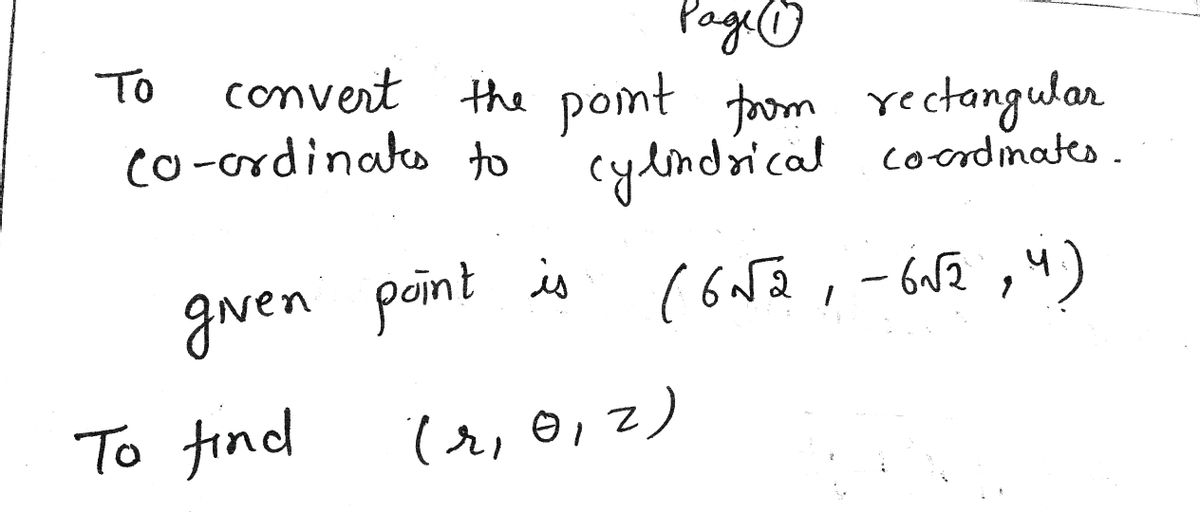 Page ①
To convert the point from rectangular
co-ordinates to cylindrical co-ordinates.
given point is (6√2, -6√2, 4)
To find (r, θ, z)